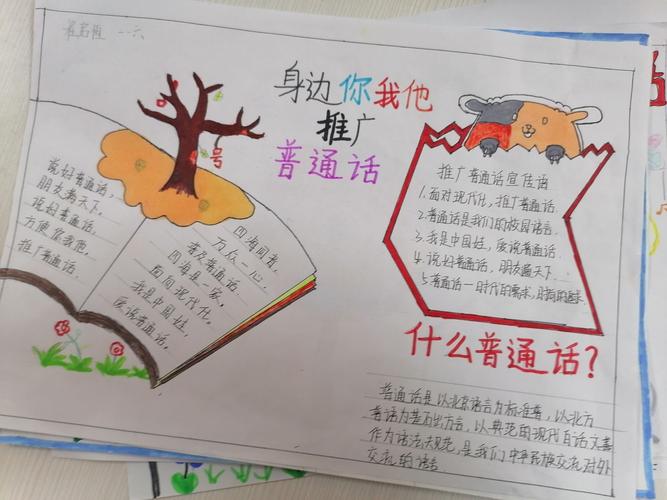 一·六
身边你我他
推广
普通话
说好普通话，
朋友遍天下。
说好普通话，
方便你我他。
推广普通话
四海同音，
万众一心。
普及普通话，
四海是一家。
面向现代化。
我是中国娃，
爱说普通话。
推广普通话宣传语
1.面对现代化，推广普通话.
2.普通话是我们的校园语言.
3.我是中国娃，爱说普通话.
4.说好普通话，朋友遍天下.
5.普通话一时代的需求，时尚的追求
什么普通话？
普通话是以北京语言为标准音，以北方
语为基础方言，以典范的现代白话文著
作为语法规范，是我们中华民族交流对外
交流的语言